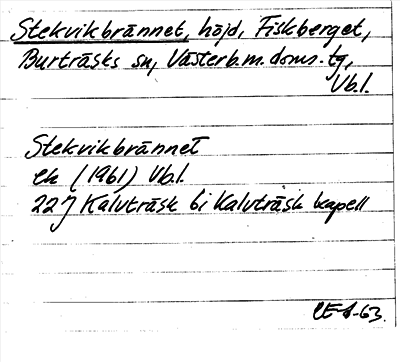 Stekvikbrännet, höjd, Fiskberget,
Burträsks sn, Västerb.m.doms.tg,
Vb.l.
Stekvikbrännet
ek (1961) Vb.l.
22J Kalvträsk 6i Kalvträsk kapell